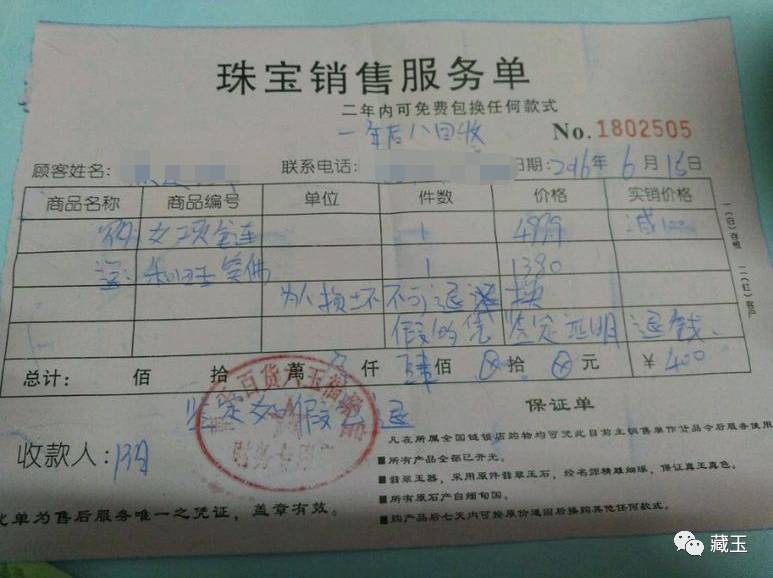 珠宝销售服务单
二年内可免费包换任何款式
一年后八回收
No. 1802505
顾客姓名： 联系电话： 日期：2016年6月15日
商品名称 商品编号 单位 件数 价格 实销价格
女项金连 1 4999 减100
笑佛 1 1380
为人损坏不可退换
假的凭鉴定证明退钱、
总计： 佰 拾 萬 仟 佰 拾 元 ￥400
鉴定如假 退
收款人：
保证单
凡在所属全国链锁店购物均可凭此目前主销售单作货品今后服务使用
■所有产品全部已开光。
■翡翠玉器，采用原件翡翠玉石，经名师精雕细琢，保证真玉真色。
■所有原石产自缅甸国。
■购产品后七天内可按原价退回后换购其他任何款式。
此单为售后服务唯一之凭证，盖章有效。
百货
财务专用
藏玉